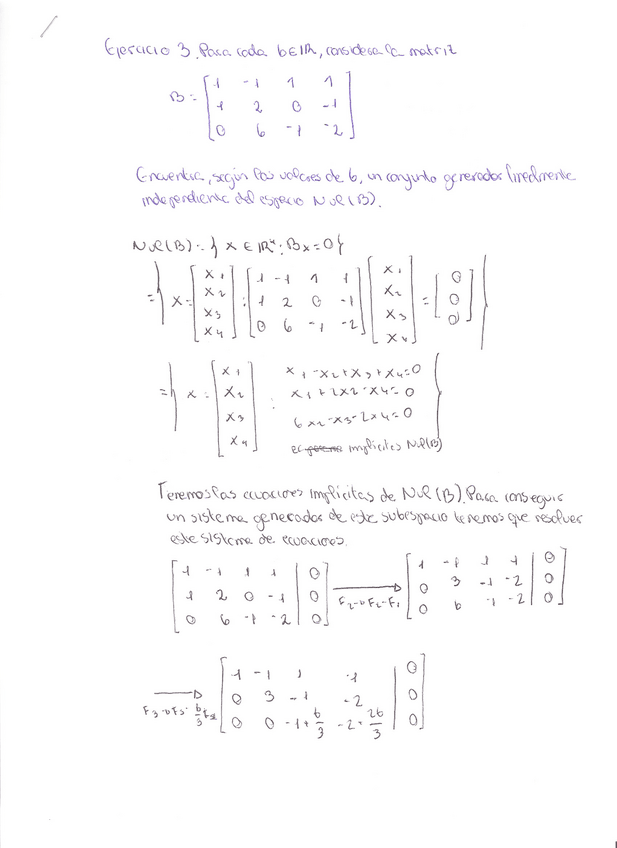 Ejercicio 3. Para cada b∈IR, considera la matriz
B = [ 1 -1 1 1
1 2 0 -1
0 b -1 -2 ]
Encuentra, según los valores de b, un conjunto generador linealmente
independiente del espacio Nul(B).
Nul(B) = { x ∈ IR⁴ : Bx = 0 }
= { x = [ x1 x2 x3 x4 ] : [ 1 -1 1 1
1 2 0 -1
0 b -1 -2 ] [ x1 x2 x3 x4 ] = [ 0 0 0 ] }
= { x = [ x1 x2 x3 x4 ] : x1 - x2 + x3 + x4 = 0
x1 + 2x2 - x4 = 0
b x2 - x3 - 2x4 = 0 }
implícitas Nul(B)
Tenemos las ecuaciones implícitas de Nul(B). Para conseguir
un sistema generador de este subespacio tenemos que resolver
este sistema de ecuaciones.
[ 1 -1 1 1 | 0
1 2 0 -1 | 0
0 b -1 -2 | 0 ]
F2→F2-F1
[ 1 -1 1 1 | 0
0 3 -1 -2 | 0
0 b -1 -2 | 0 ]
F3→F3-b/3 F2
[ 1 -1 1 1 | 0
0 3 -1 -2 | 0
0 0 -1+b/3 -2+2b/3 | 0 ]